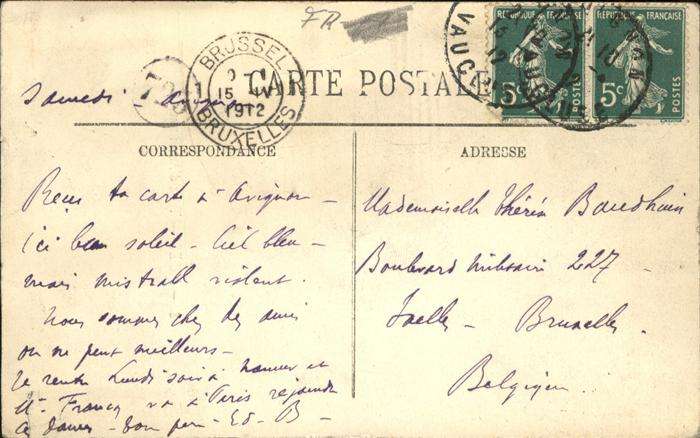 FR
CARTE POSTALE
REPUBLIQUE FRANÇAISE
REPUBLIQUE FRANÇAISE
5c POSTES
5c POSTES
VAUCL
BRUSSEL
15 IV
1912
BRUXELLES
Samedi
CORRESPONDANCE
Reçu ta carte à Avignon -
Ici beau soleil - Ciel bleu -
mais mistrall violent.
Nous sommes chez des amis
on ne peut meilleurs -
Je rentre Lundi soir à Namur et
Mr Francq va à Paris rejoindre
ton père - Ed. B -
ADRESSE
Mademoiselle Baudhuin
Boulevard militaire 227
Ixelles - Bruxelles.
Belgique.